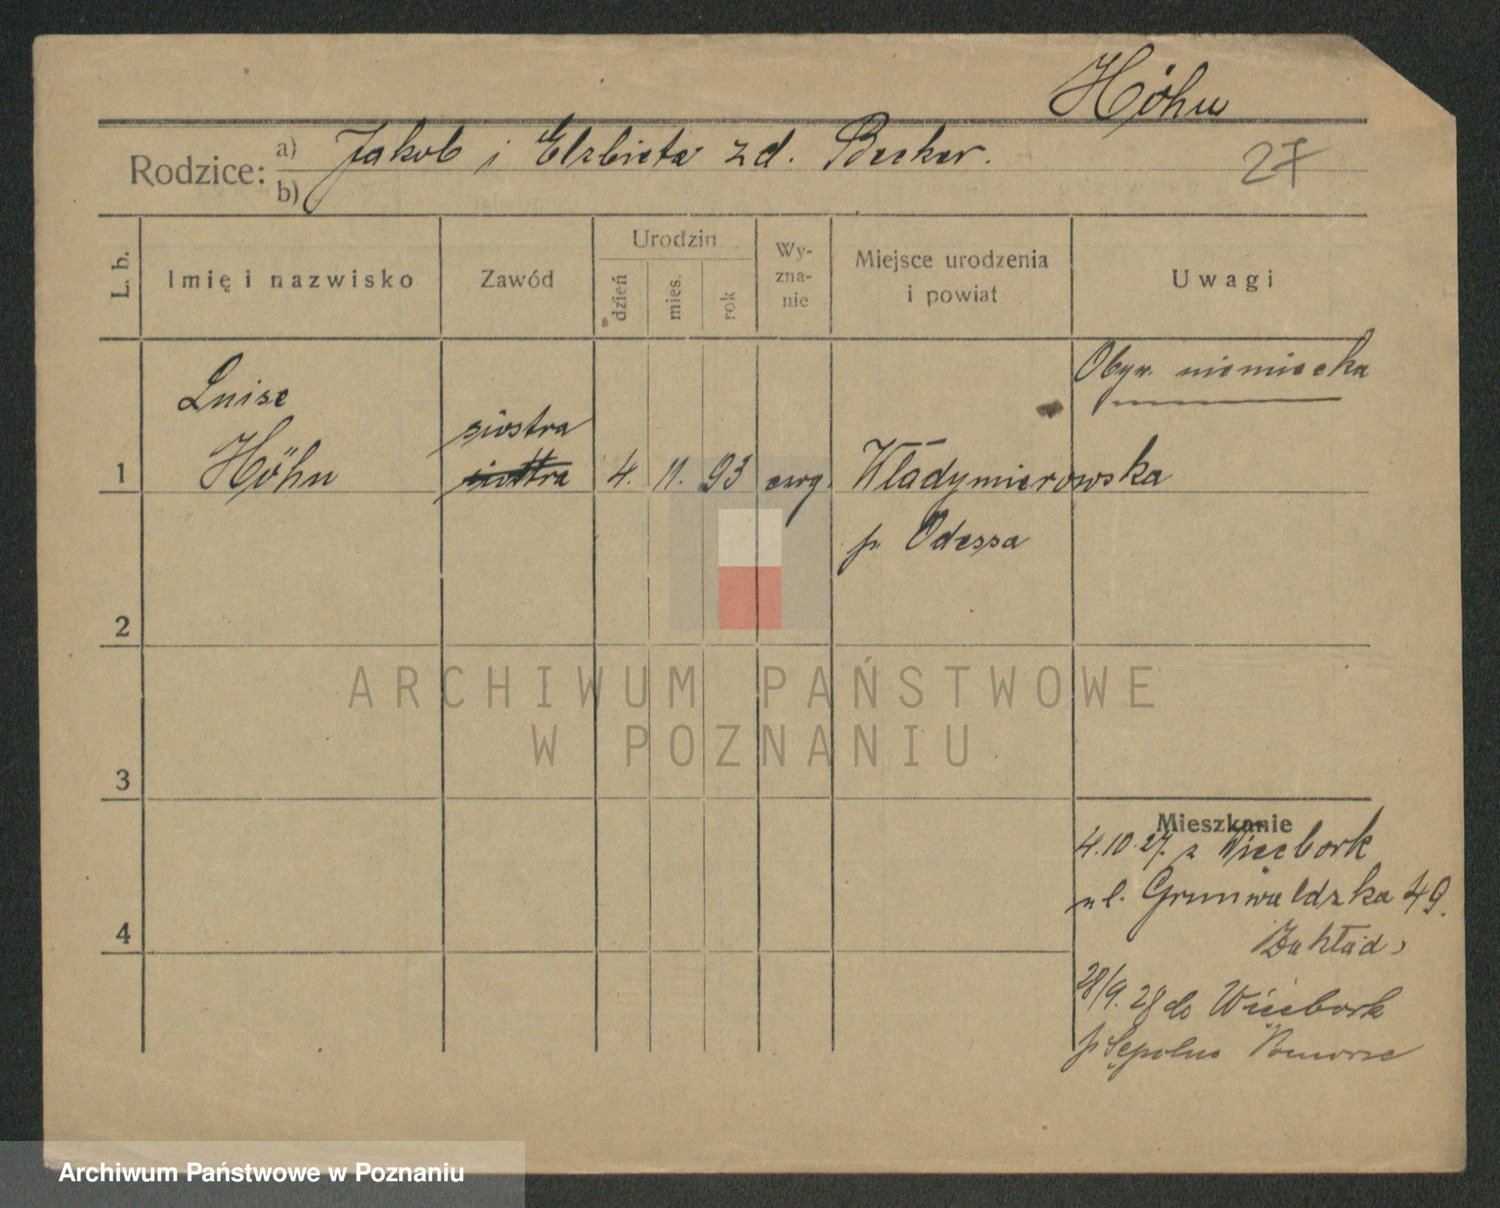 Höhn
Rodzice: a) Jakob i Elzbieta zd. Becker.
b)
27
L. b.
Imię i nazwisko
Zawód
Urodzin
dzień
mies.
rok
Wy-
zna-
nie
Miejsce urodzenia
i powiat
Uwagi
Obyw. niemiecka
Luise
siostra
1 Höhn siostra 4. 11. 93 ewg. Władymierowska
p. Odessa
2
3
4
Mieszkanie
4.10.27. z Więcbork
ul. Grunwaldzka 49.
Zakład
28/9. 28 do Więcbork
p Sępolno Pomorze
ARCHIWUM PAŃSTWOWE
W POZNANIU
Archiwum Państwowe w Poznaniu